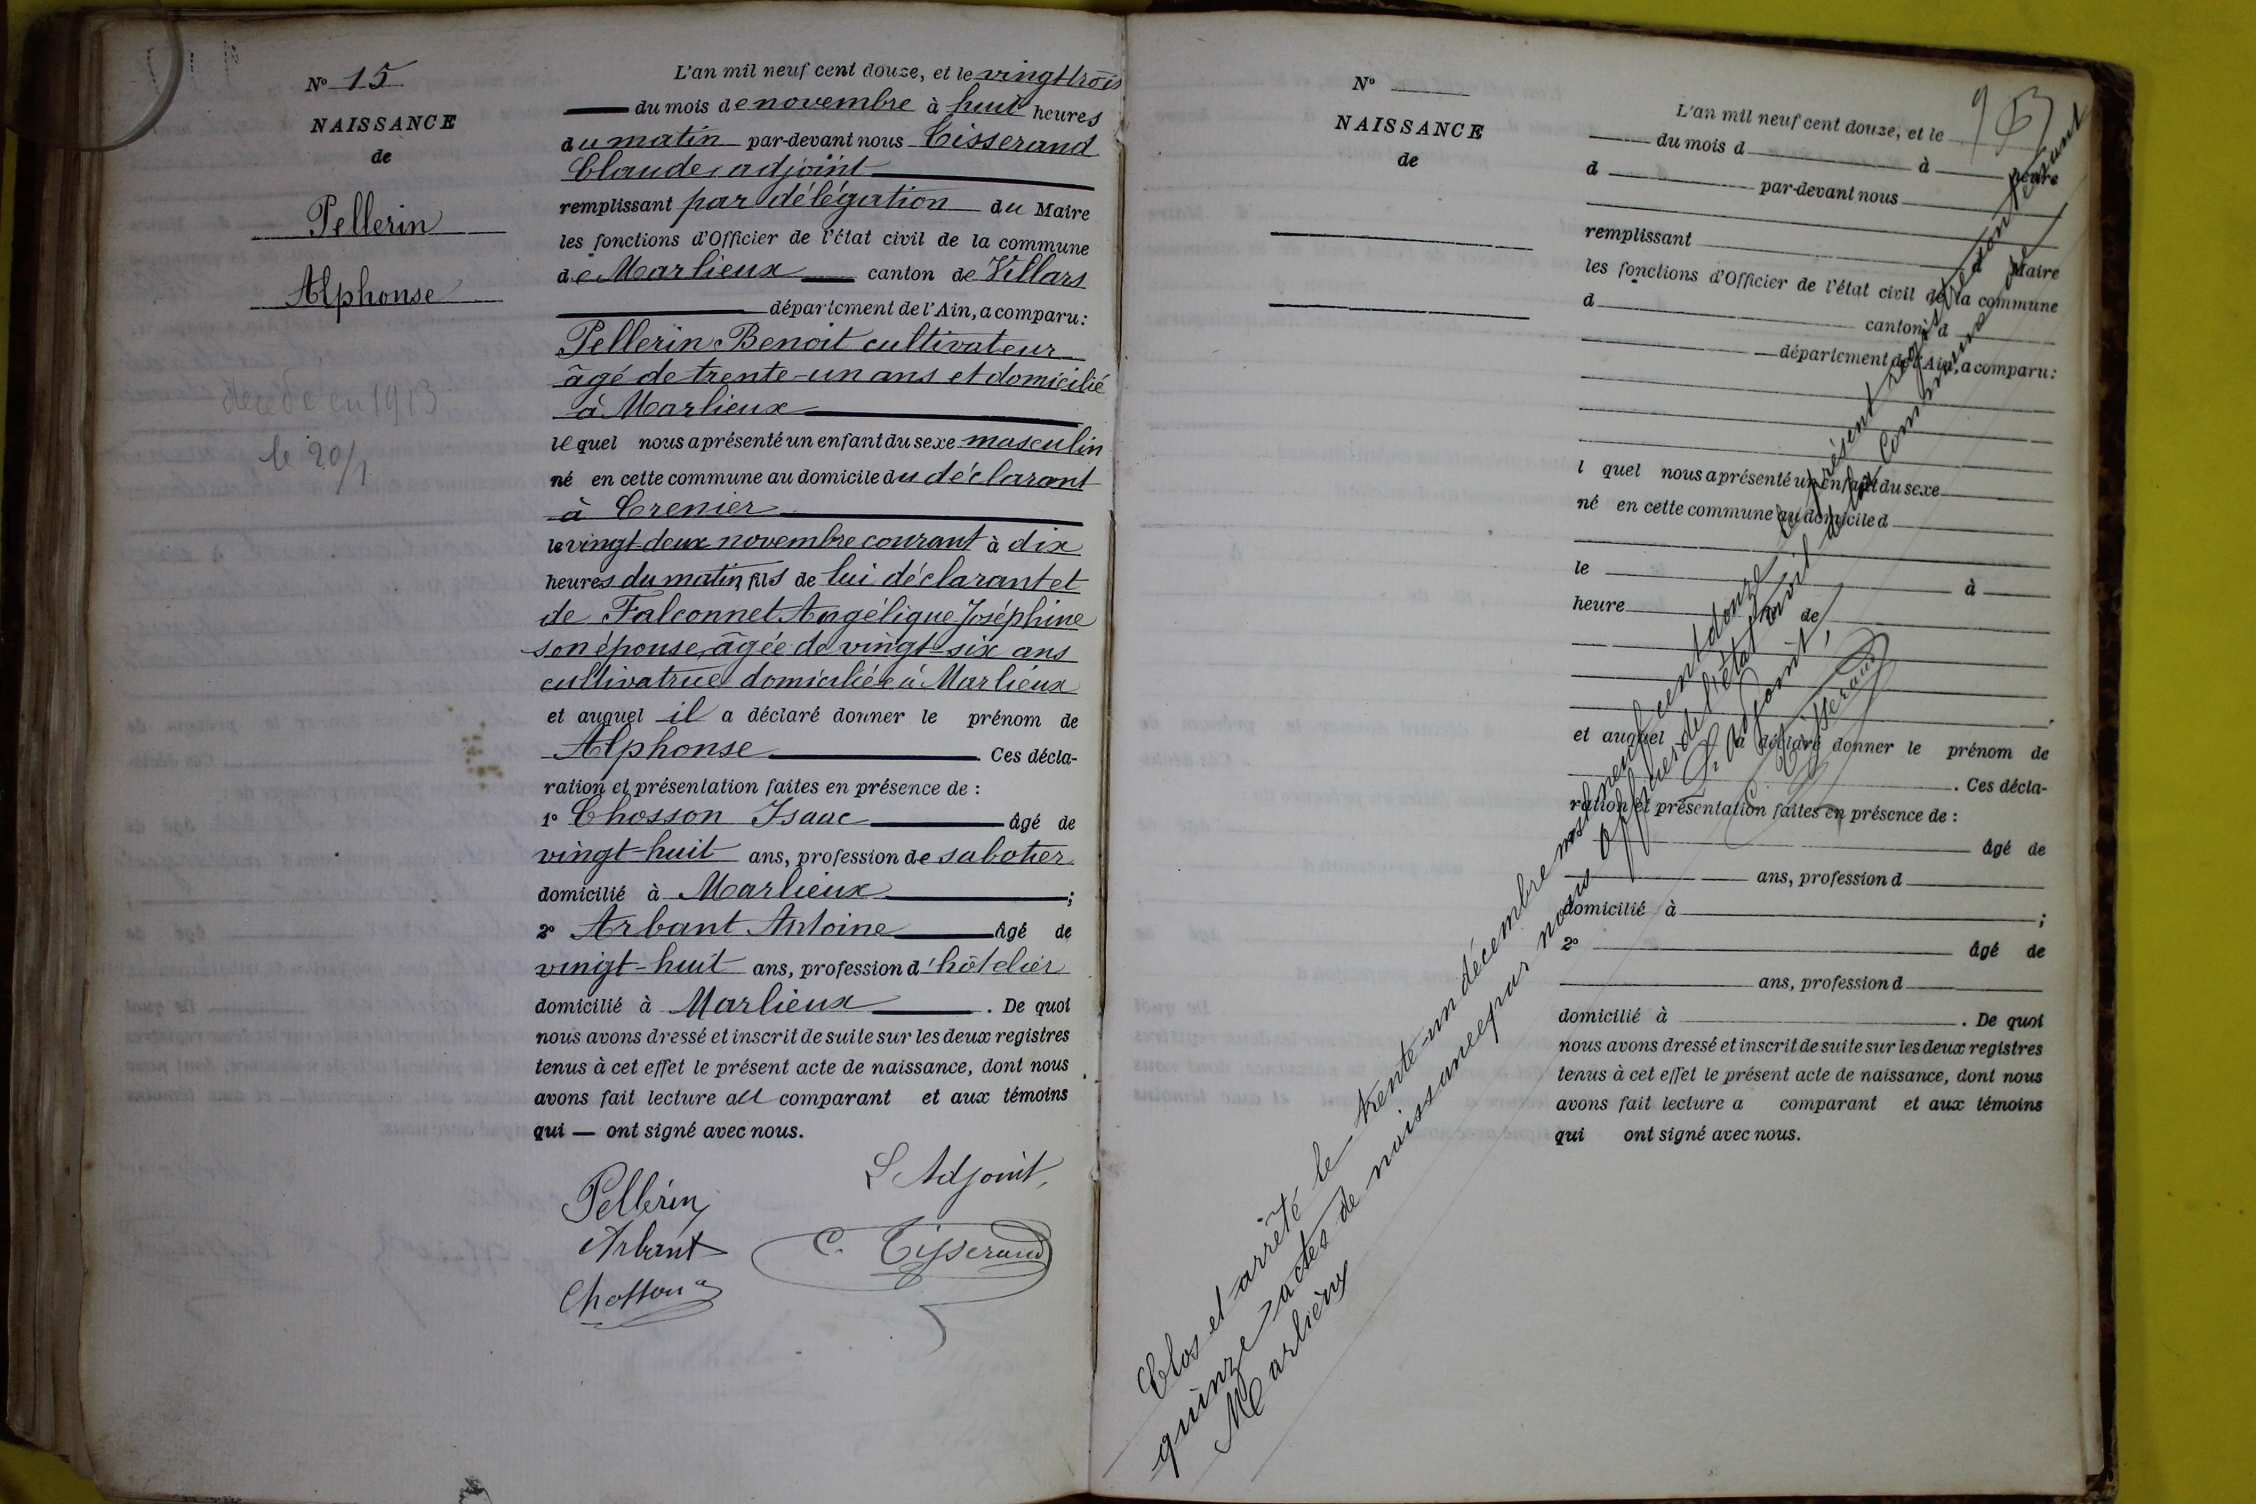 N° 15
NAISSANCE
de
Pellerin
Alphonse
décédé en 1913
le 20/1
L'an mil neuf cent douze, et le vingt-trois
du mois de novembre à huit heures
du matin par-devant nous Tisserand
Claude, adjoint
remplissant par délégation du Maire
les fonctions d'Officier de l'état civil de la commune
de Marlieux canton de Villars
département de l'Ain, a comparu :
Pellerin Benoit cultivateur
âgé de trente-un ans et domicilié
à Marlieux
lequel nous a présenté un enfant du sexe masculin
né en cette commune au domicile du déclarant
à Crenier
le vingt-deux novembre courant à dix
heures du matin, fils de lui déclarant et
de Falconnet Angélique Joséphine
son épouse, âgée de vingt-six ans
cultivatrice domiciliée à Marlieux
et auquel il a déclaré donner le prénom de
Alphonse . Ces décla-
ration et présentation faites en présence de :
1° Chosson Isaac âgé de
vingt-huit ans, profession de sabotier
domicilié à Marlieux ;
2° Arbant Antoine âgé de
vingt-huit ans, profession d'hôtelier
domicilié à Marlieux . De quoi
nous avons dressé et inscrit de suite sur les deux registres
tenus à cet effet le présent acte de naissance, dont nous
avons fait lecture au comparant et aux témoins
qui — ont signé avec nous.
Pellerin
L'Adjoint,
Arbant
C. Tisserand
Chosson
N°
NAISSANCE
de
L'an mil neuf cent douze, et le
du mois d à heure
d par-devant nous
remplissant d Maire
les fonctions d'Officier de l'état civil de la commune
d canton d
département de l'Ain, a comparu :
l quel nous a présenté un enfant du sexe
né en cette commune au domicile d
le à
heure fil de
et auquel a déclaré donner le prénom de
. Ces décla-
ration et présentation faites en présence de :
âgé de
ans, profession d
domicilié à ;
2° âgé de
ans, profession d
domicilié à . De quoi
nous avons dressé et inscrit de suite sur les deux registres
tenus à cet effet le présent acte de naissance, dont nous
avons fait lecture a comparant et aux témoins
qui ont signé avec nous.
Clos et arrêté le trente-un décembre mil neuf cent douze le présent registre contenant
quinze actes de naissance par nous Officier de l'état civil de la Commune de
Marlieux
L'Adjoint,
C. Tisserand